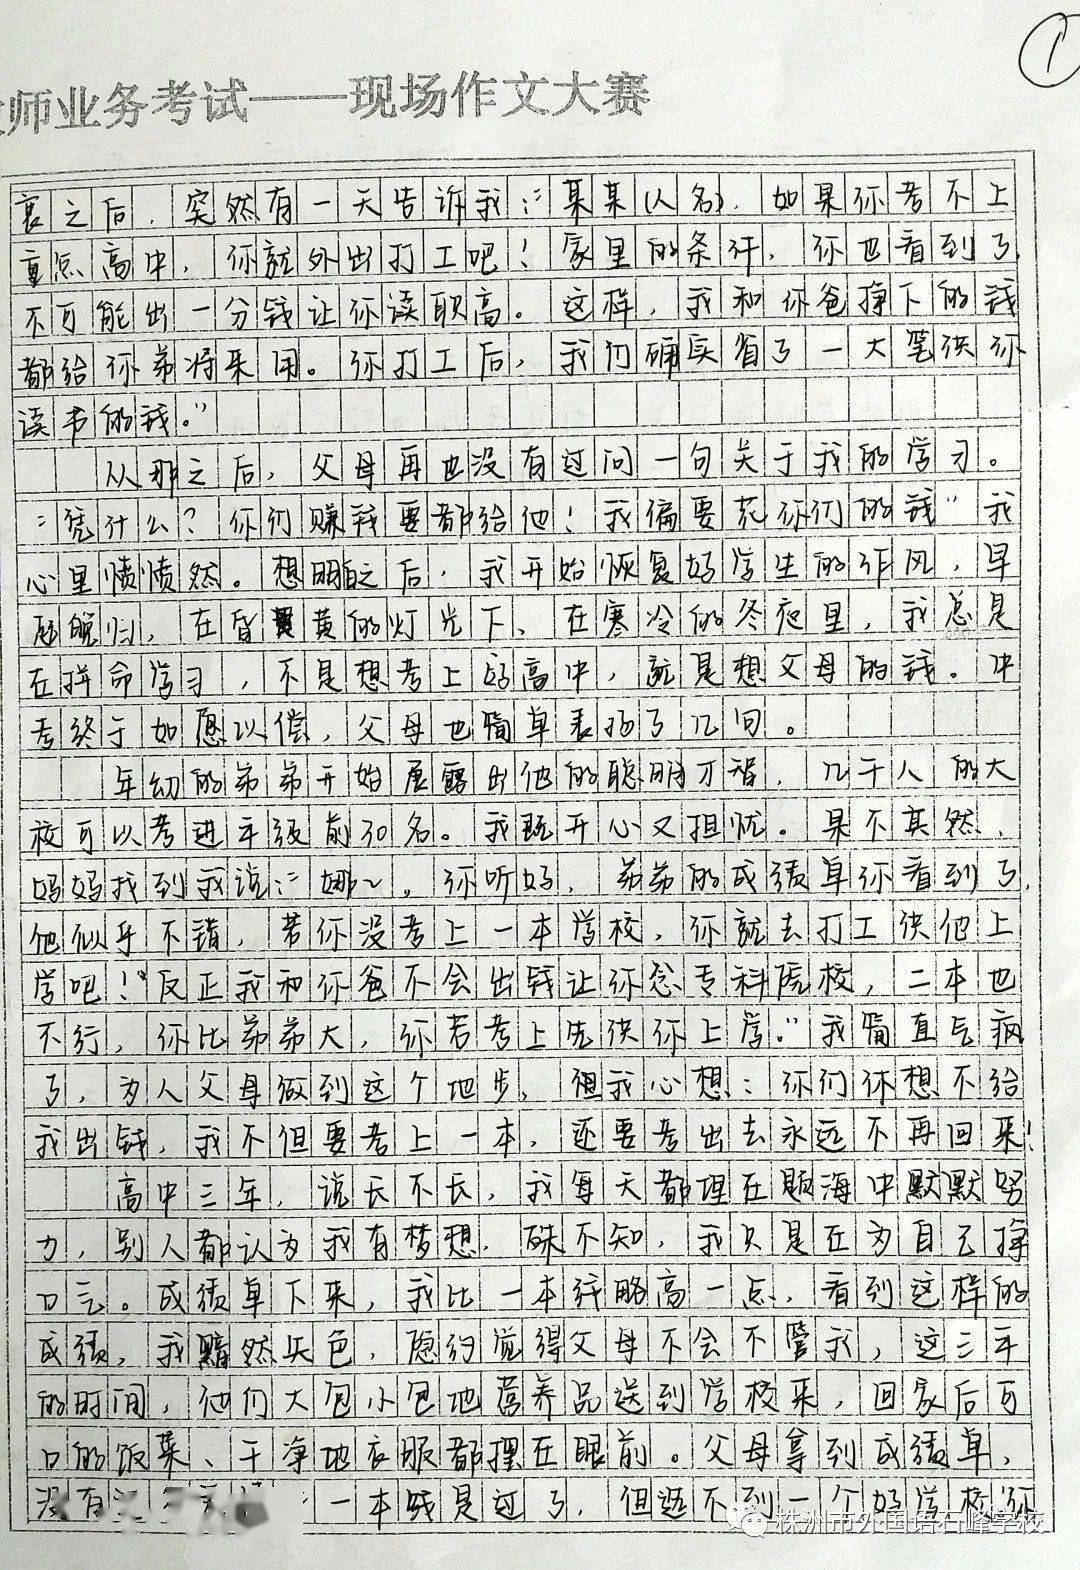 ①
师业务考试——现场作文大赛
衰之后，突然有一天告诉我："某某(人名)，如果你考不上
重点高中，你就外出打工吧！家里的条件，你也看到了，
不可能出一分钱让你读职高。这样，我和你爸挣下的钱
都给你弟将来用。你打工后，我们确实省了一大笔供你
读书的钱。"
从那之后，父母再也没有过问一句关于我的学习。
"凭什么？你们赚钱要都给他！我偏要花你们的钱"我
心里愤愤然。想明白之后，我开始恢复好学生的作风，早
起晚归，在昏黄的灯光下、在寒冷的冬夜里，我总是
在拼命学习，不是想考上好高中，就是想父母的钱。中
考终于如愿以偿，父母也简单表扬了几句。
年幼的弟弟开始展露出他的聪明才智，几千人的大
校可以考进年级前30名。我既开心又担忧。果不其然，
妈妈找到我说："娜~，你听好，弟弟的成绩单你看到了，
他似乎不错，若你没考上一本学校，你就去打工供他上
学吧！"反正我和你爸不会出钱让你念专科院校，二本也
不行，你比弟弟大，你若考上先供你上学。"我简直气疯
了，为人父母做到这个地步，但我心想：你们休想不给
我出钱，我不但要考上一本，还要考出去永远不再回来！
高中三年，说长不长，我每天都埋在题海中默默努
力，别人都认为我有梦想，殊不知，我只是在为自己挣
口气。成绩单下来，我比一本线略高一点，看到这样的
成绩，我黯然失色，隐约觉得父母不会不管我，这三年
的时间，他们大包小包地营养品送到学校来，回家后可
口的饭菜、干净地衣服都摆在眼前。父母拿到成绩单，
没有 一本线是过了，但还不到一个好学校你
株洲市外国语石峰学校